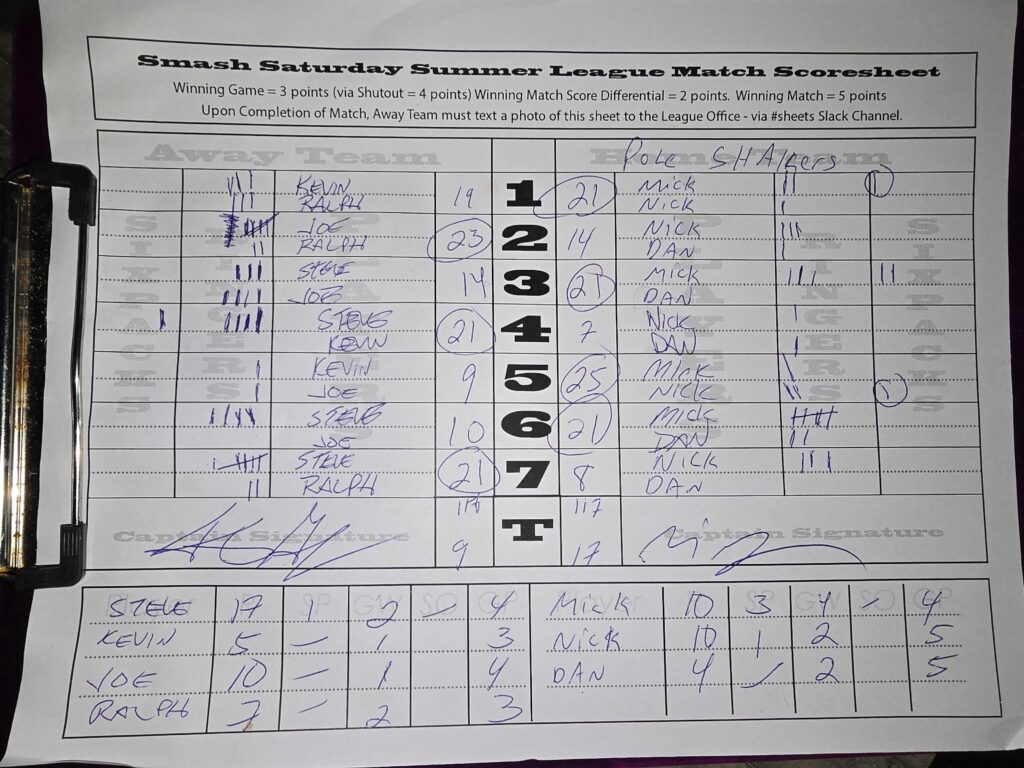 Smash Saturday Summer League Match Scoresheet
Winning Game = 3 points (via Shutout = 4 points) Winning Match Score Differential = 2 points. Winning Match = 5 points
Upon Completion of Match, Away Team must text a photo of this sheet to the League Office - via #sheets Slack Channel.
Away Team Home Team
POLE SHAKERS
KEVIN 19 1 21 MICK
RALPH NICK
JOE 23 2 14 NICK
RALPH DAN
STEVE 14 3 21 MICK
JOE DAN
STEVE 21 4 7 NICK
KEVIN DAN
KEVIN 9 5 25 MICK
JOE NICK
STEVE 10 6 21 MICK
JOE DAN
STEVE 21 7 8 NICK
RALPH DAN
SIXPACKS RINGERS PLAYERS PLAYERS RINGERS SIXPACKS
117
Captain Signature T Captain Signature
9 17
Player P SP GW SO GP Player P SP GW SO GP
STEVE 17 1 2 – 4 MICK 10 3 4 – 4
KEVIN 5 – 1 3 NICK 10 1 2 5
JOE 10 – 1 4 DAN 4 – 2 5
RALPH 7 – 2 3